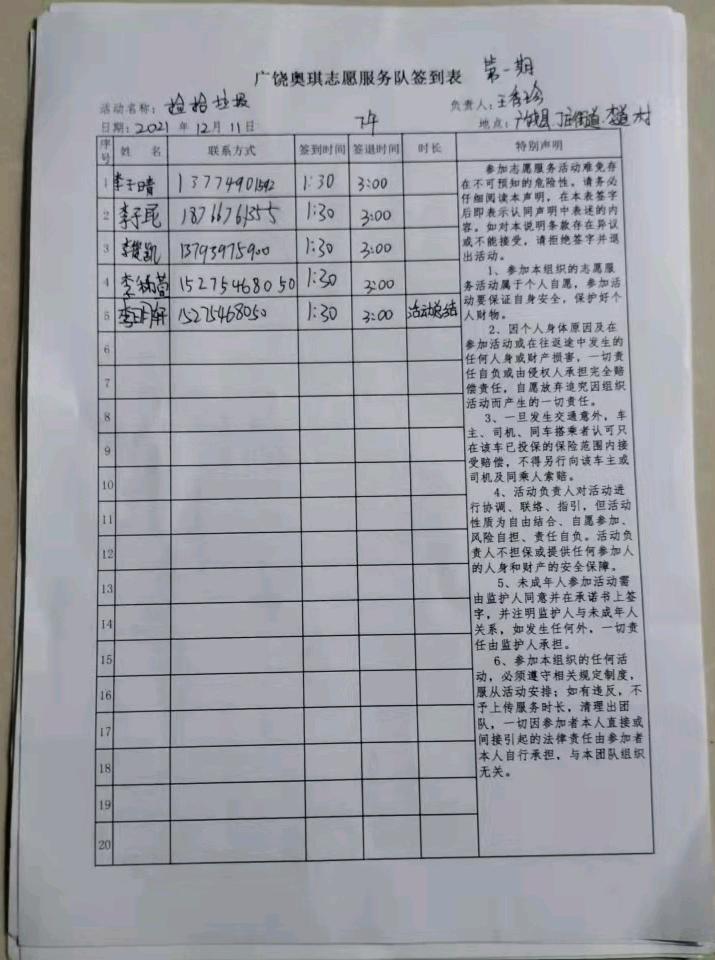 广饶奥琪志愿服务队签到表 第一期
活动名称：捡拾垃圾 负责人：王秀珍
日期：2021年12月11日 下午 地点：广饶县丁庄街道 村
序号 姓名 联系方式 签到时间 签退时间 时长 特别声明
1 李子晴 13774901592 1:30 3:00
2 李子昆 18766761555 1:30 3:00
3 李 凯 13793975900 1:30 3:00
4 李 萱 15275468050 1:30 3:00
5 李 轩 15275468050 1:30 3:00 活动总结
6
7
8
9
10
11
12
13
14
15
16
17
18
19
20
参加志愿服务活动难免存
在不可预知的危险性。请务必
仔细阅读本声明，在本表签字
后即表示认同声明中表述的内
容。如对本说明条款存在异议
或不能接受，请拒绝签字并退
出活动。
1、参加本组织的志愿服
务活动属于个人自愿，参加活
动要保证自身安全，保护好个
人财物。
2、因个人身体原因及在
参加活动或在往返途中发生的
任何人身或财产损害，一切责
任自负或由侵权人承担完全赔
偿责任，自愿放弃追究因组织
活动而产生的一切责任。
3、一旦发生交通意外，车
主、司机、同车搭乘者认可只
在该车已投保的保险范围内接
受赔偿，不得另行向该车主或
司机及同乘人索赔。
4、活动负责人对活动进
行协调、联络、指引，但活动
性质为自由结合、自愿参加、
风险自担、责任自负。活动负
责人不担保或提供任何参加人
的人身和财产的安全保障。
5、未成年人参加活动需
由监护人同意并在承诺书上签
字，并注明监护人与未成年人
关系，如发生任何外，一切责
任由监护人承担。
6、参加本组织的任何活
动，必须遵守相关规定制度，
服从活动安排；如有违反，不
予上传服务时长，清理出团
队，一切因参加者本人直接或
间接引起的法律责任由参加者
本人自行承担，与本团队组织
无关。